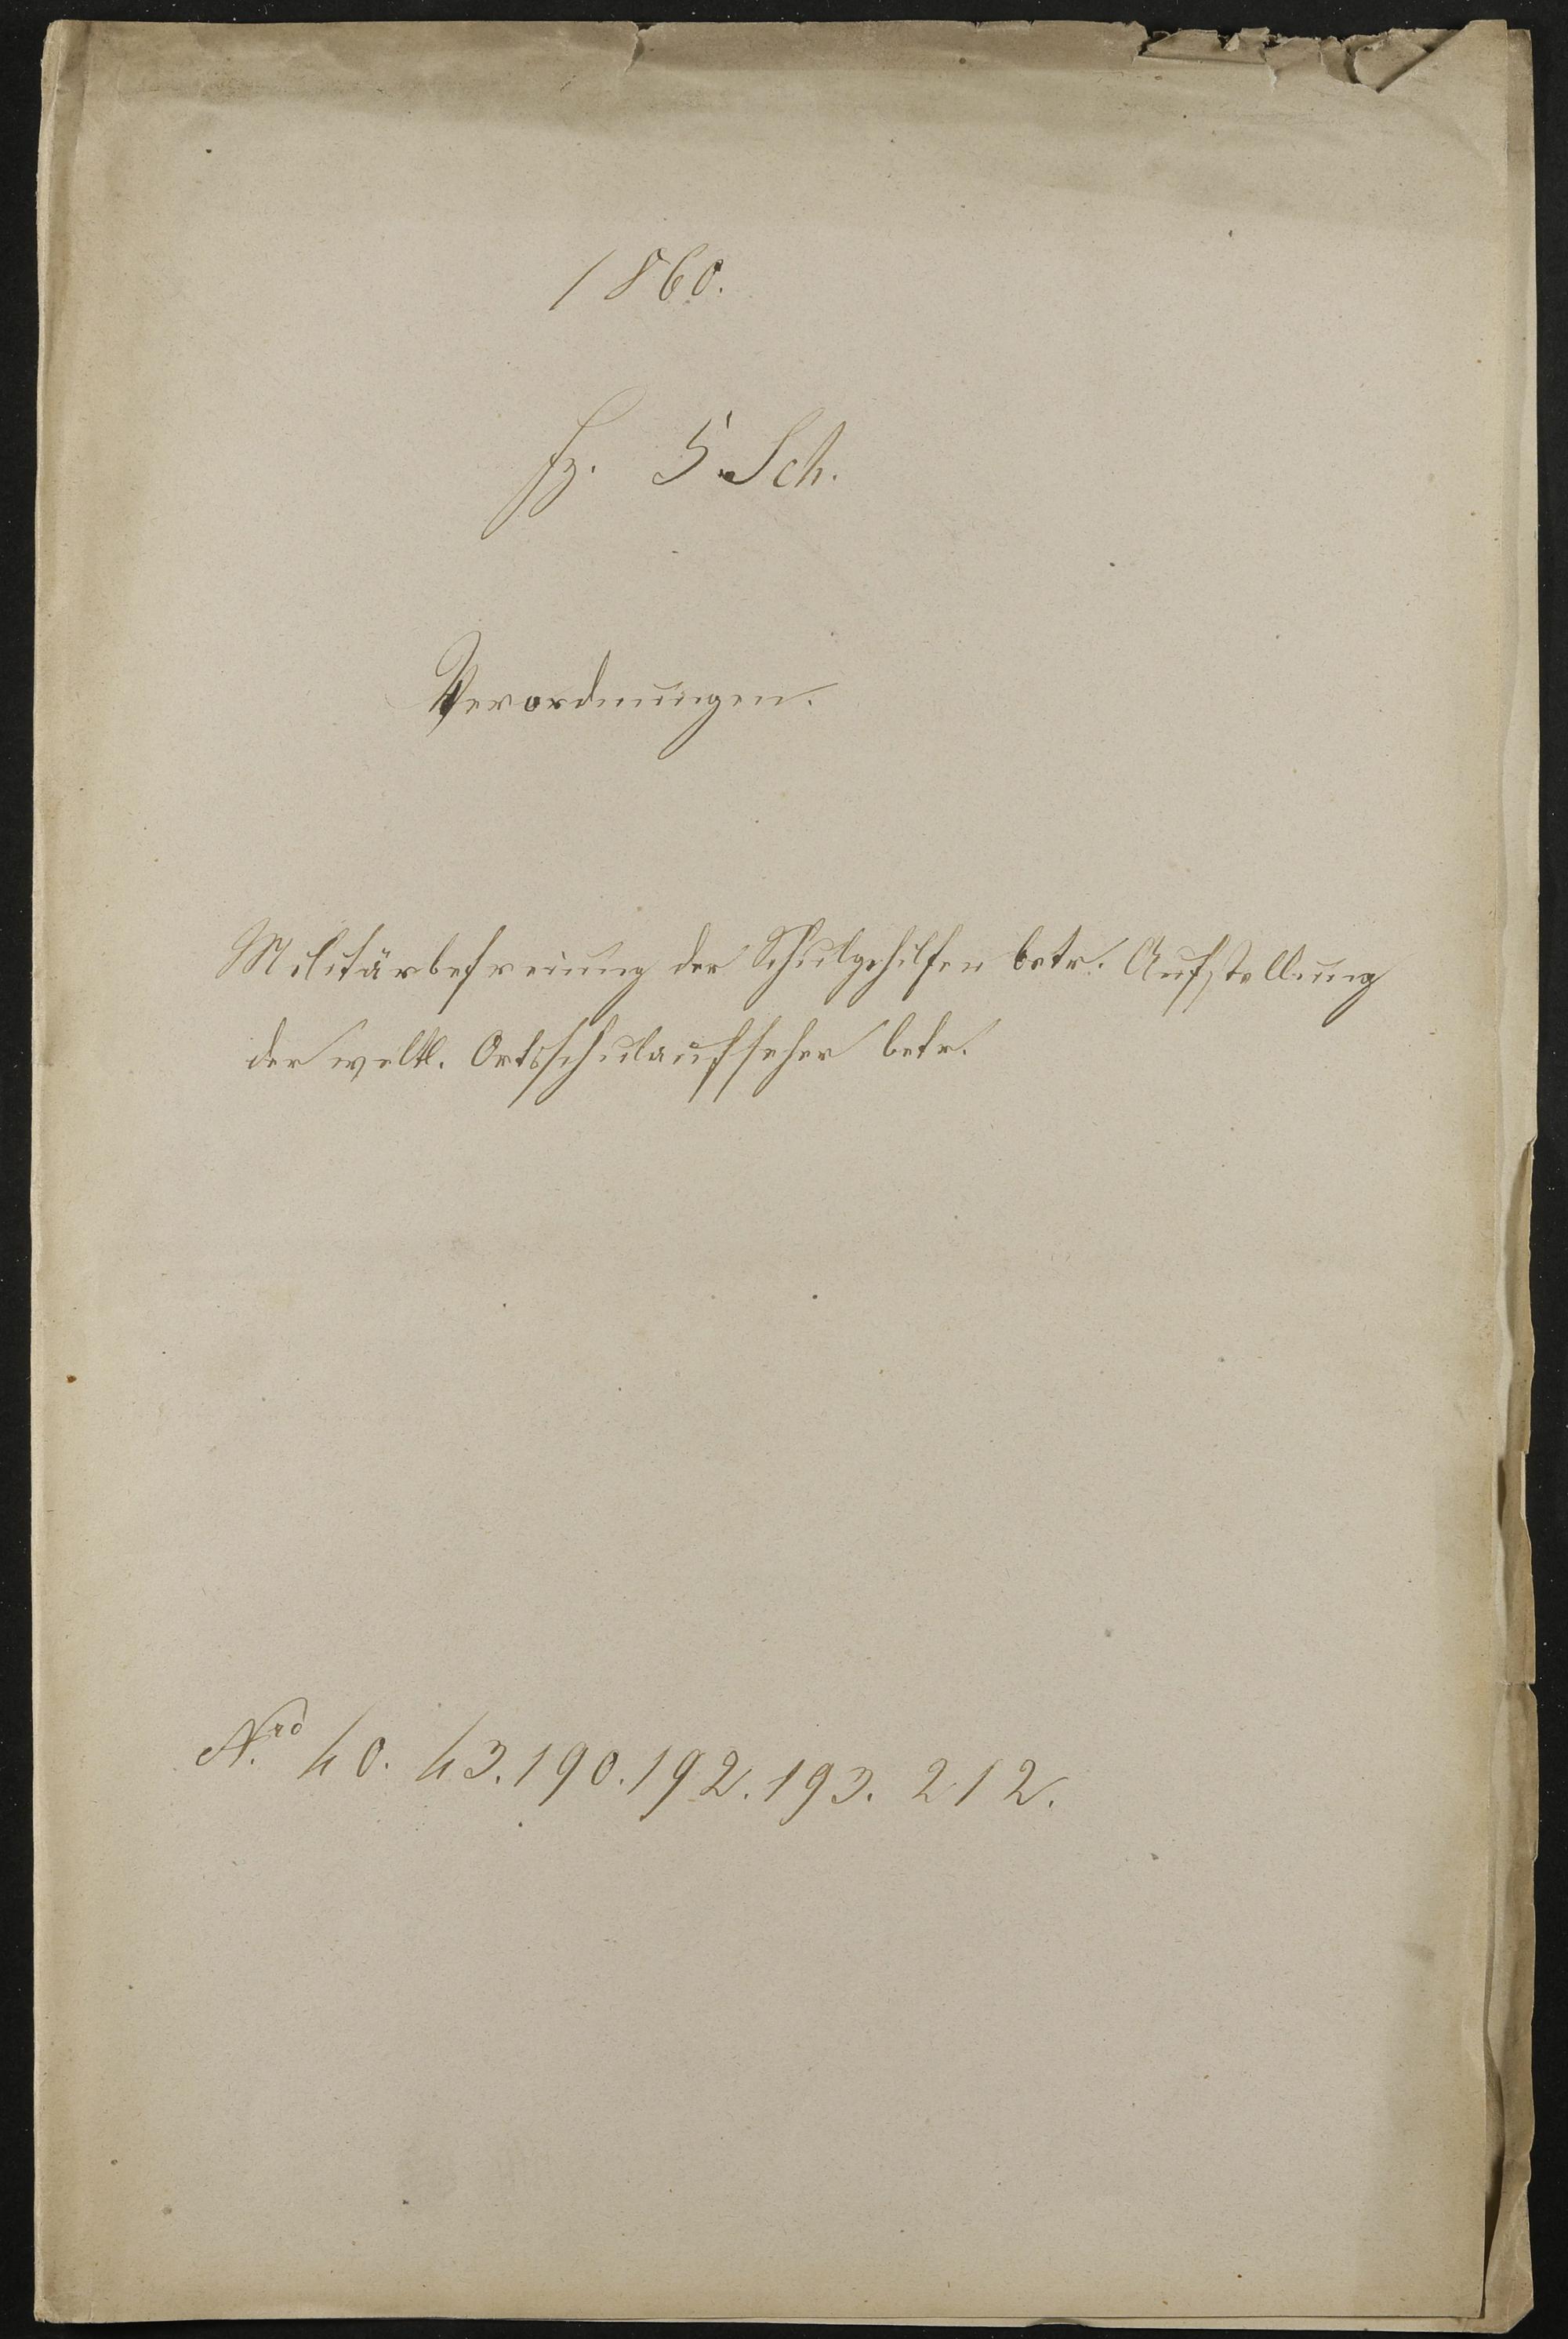 1860.
fz. 5. Sch.
Verordnungen.
Militärbefreiung der Schulgehilfen betr. Aufstellung
der weltl. Ortsschulaufseher betr.
N.ro 40. 43. 190. 192. 193. 212.